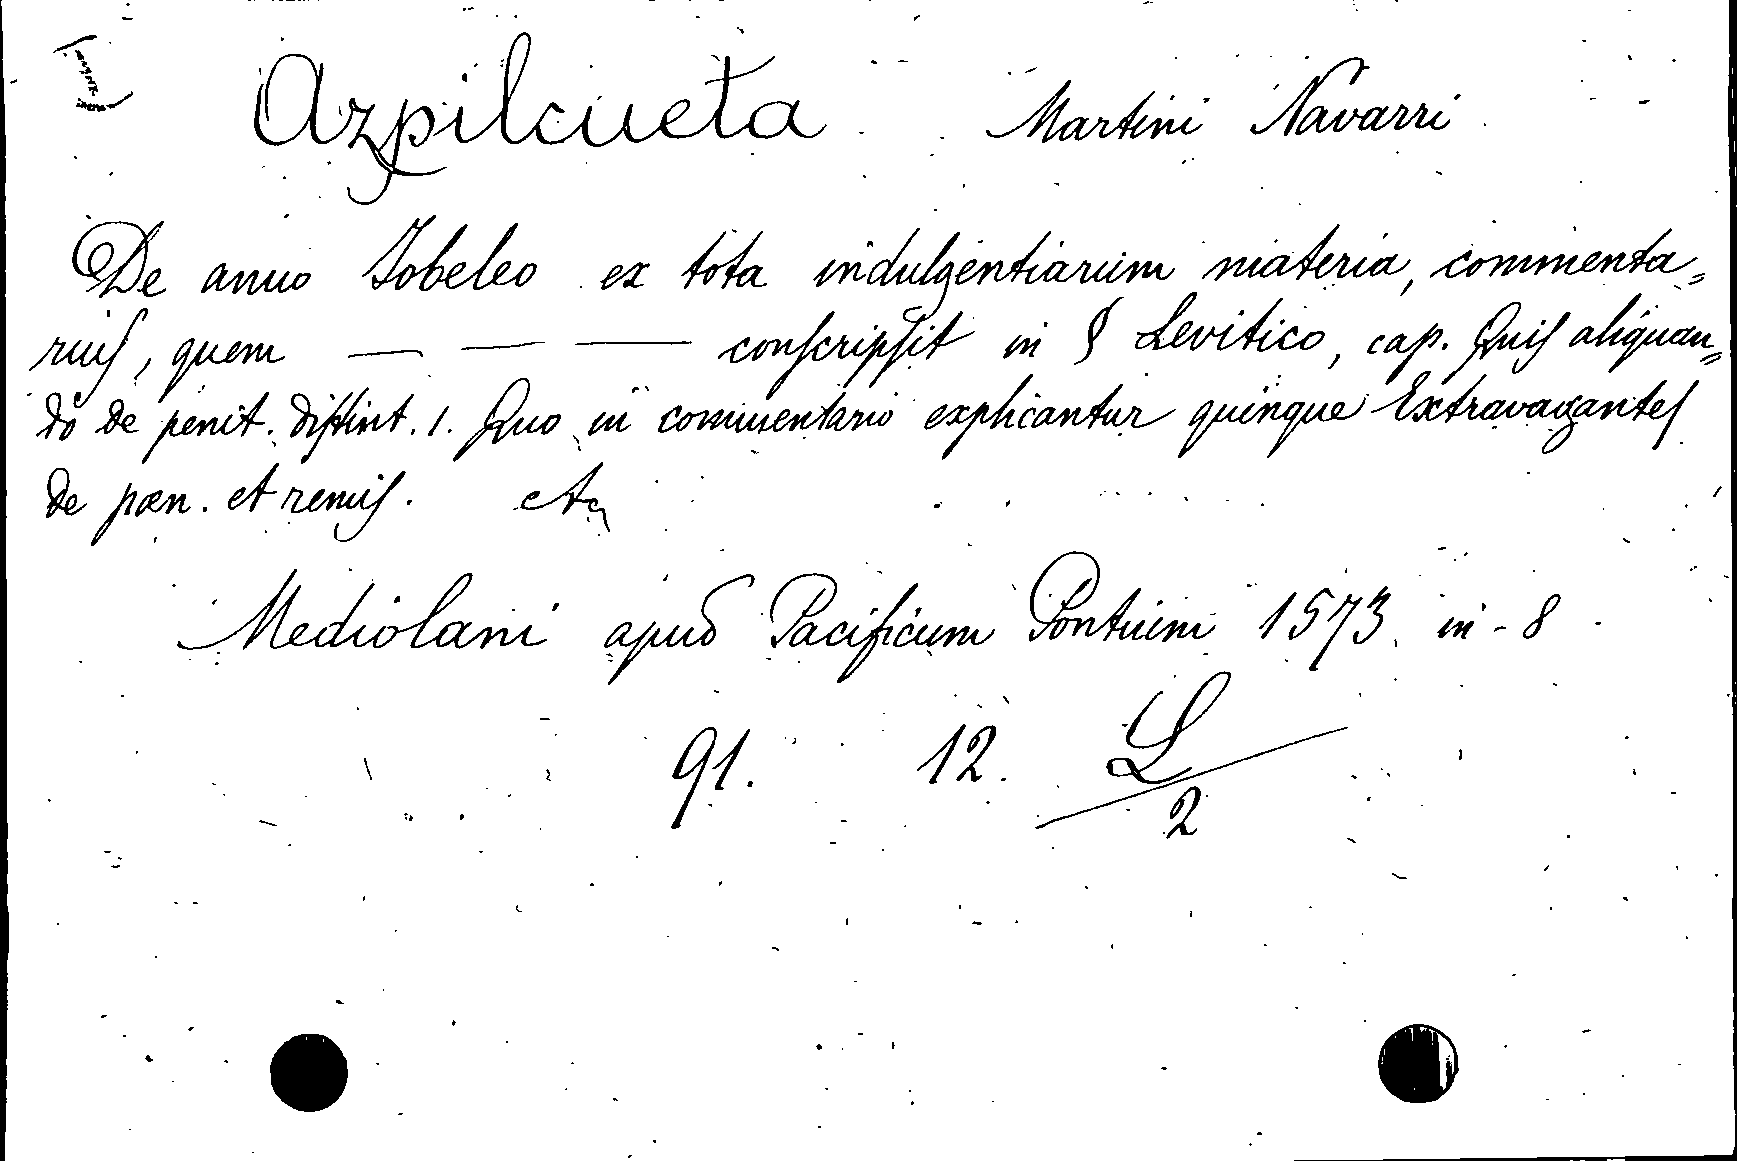 I
Azpilcueta Martini Navarri
De anno Jobeleo ex tota indulgentiarum materia, commenta„
rius, quem — — — conscripsit in § Levitico, cap. Quis aliquan„
do de penit. distint. 1. Quo in commentario explicantur quinque Extravagantes
de pœn. et remis. etc
Mediolani apud Pacificum Pontium 1573 in-8
91. 12. L/2